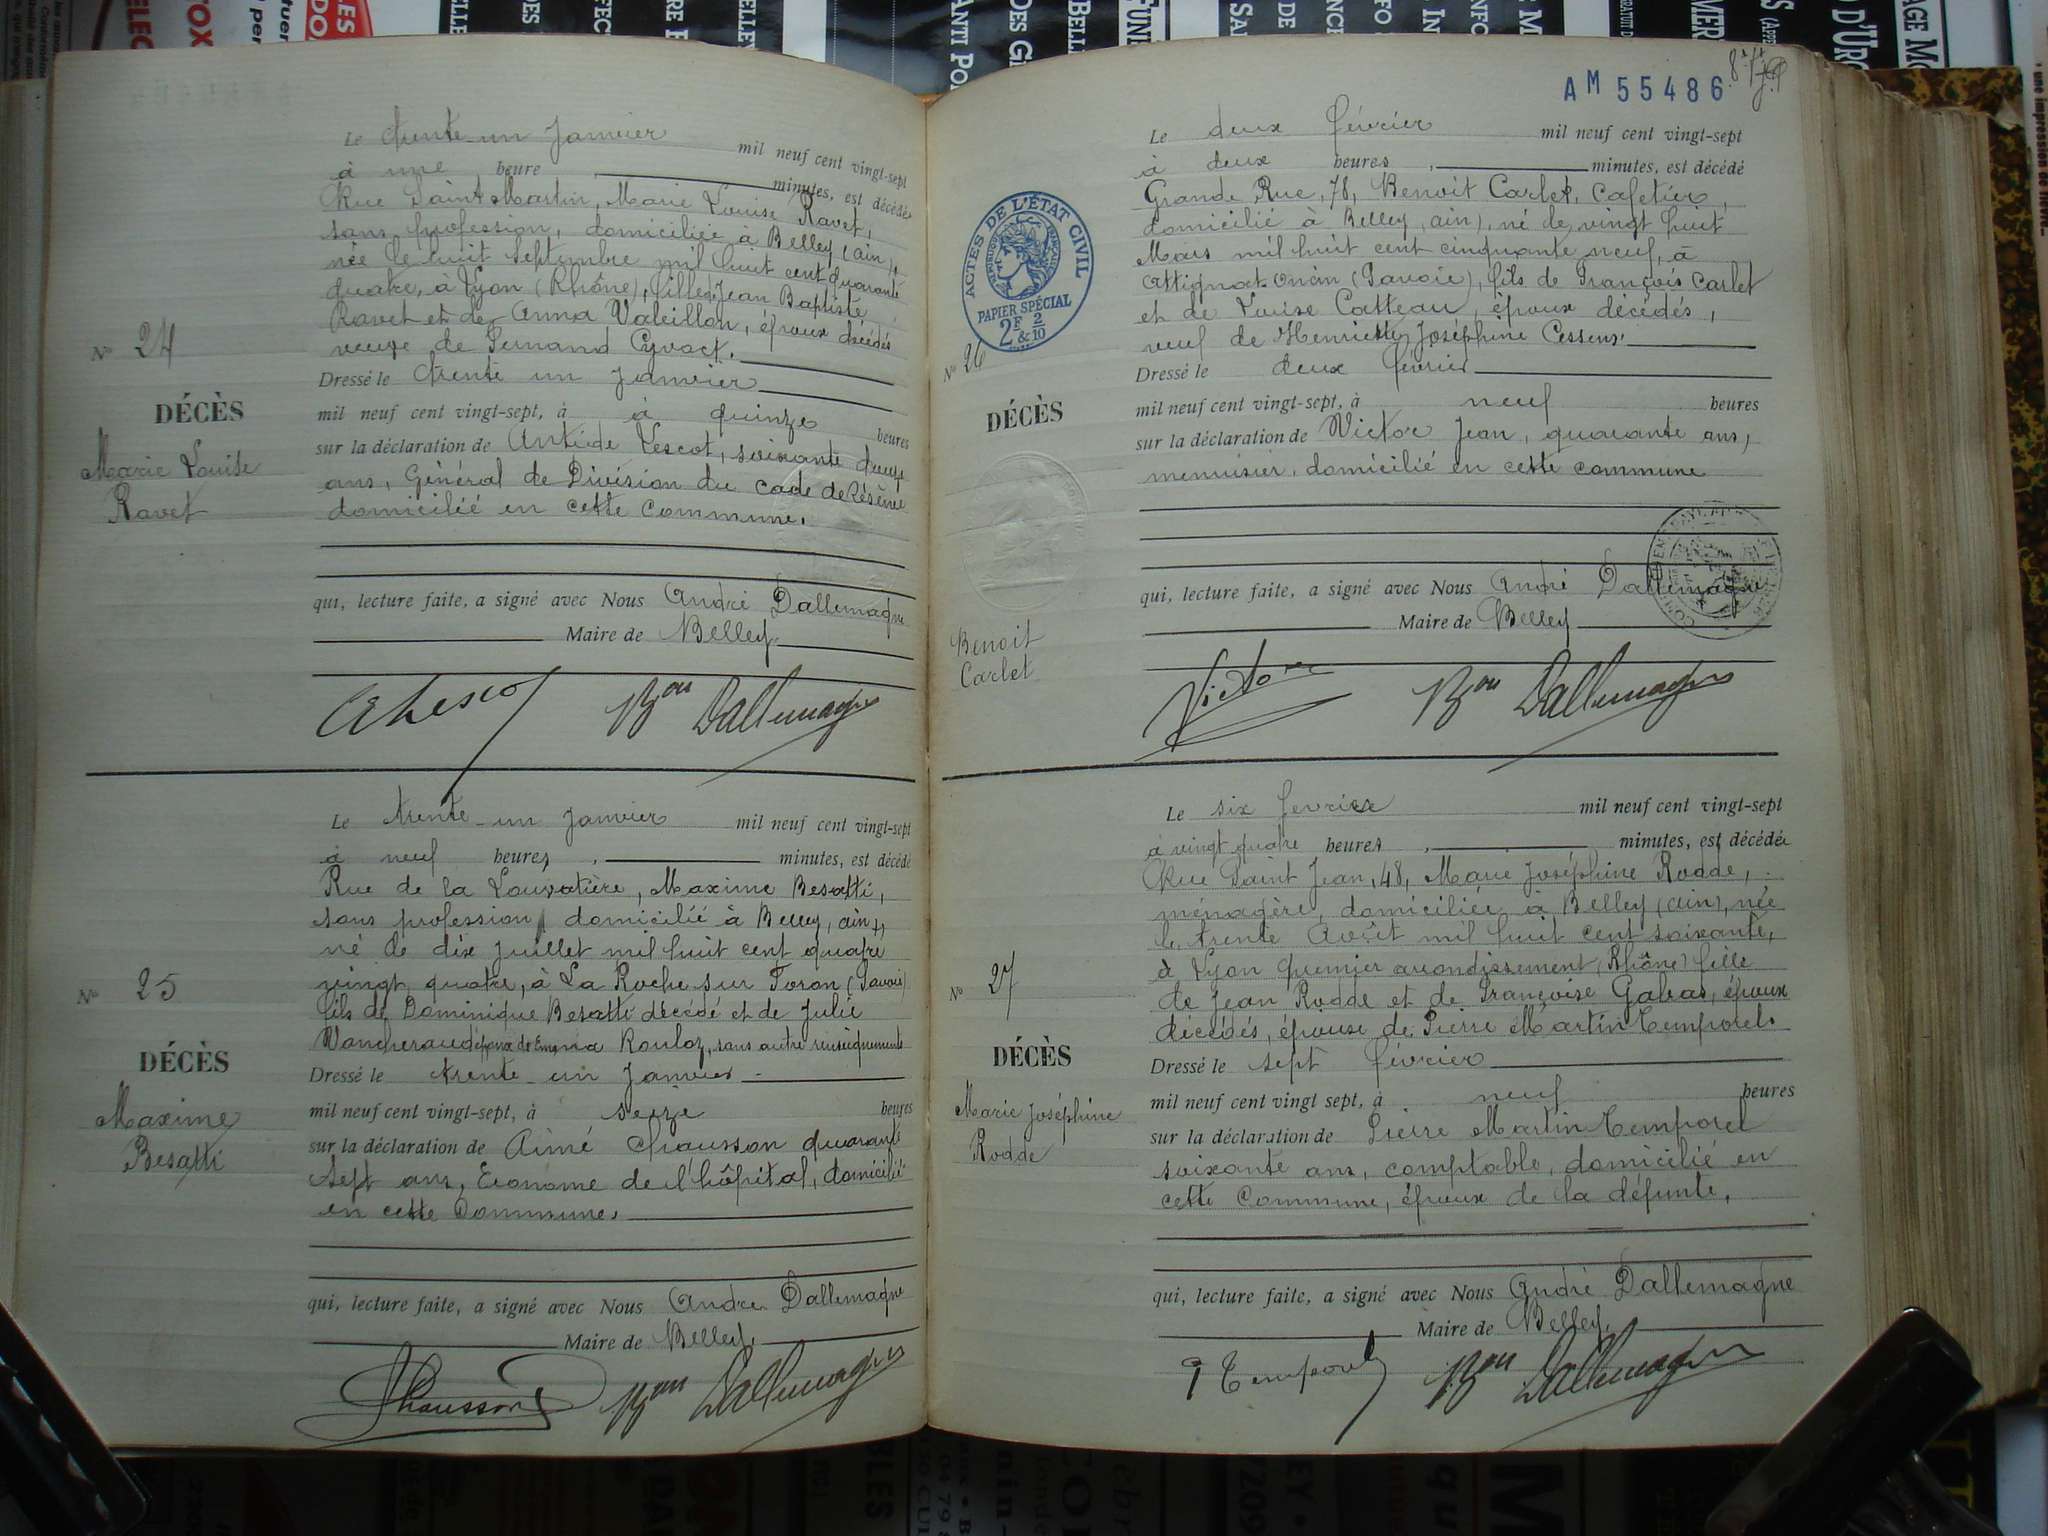 AM 55486
Le trente-un Janvier mil neuf cent vingt-sept
à une heure, minutes, est décédée
Rue Saint Martin, Marie Louise Ravet,
sans profession, domiciliée à Belley (ain),
née le huit Septembre mil huit cent quarante
quatre, à Lyon (Rhône), fille de Jean Baptiste
Ravet et de Anna Valeillon, époux décédés
veuve de Fernand Cyvoct.
Dressé le trente un Janvier
mil neuf cent vingt-sept, à à quinze heures
sur la déclaration de Antide Lescot, soixante douze
ans, Général de Division du cadre de Réserve
domiciliée en cette commune.
qui, lecture faite, a signé avec Nous André Dallemagne
Maire de Belley.
Bon Dallemagne
No 24
DÉCÈS
Marie Louise
Ravet
Le trente-un Janvier mil neuf cent vingt-sept
à neuf heures, minutes, est décédé
Rue de la Louvatière, Maxime Besatti,
sans profession, domicilié à Belley, ain,
né le dix Juillet mil huit cent quatre
vingt quatre, à La Roche sur Foron (Savoie)
fils de Dominique Besatti décédé et de Julie
époux de Emma Rouloz, sans autre renseignements
Dressé le trente-un Janvier
mil neuf cent vingt-sept, à seize heures
sur la déclaration de Aimé Chausson quarante
sept ans, Econome de l'hôpital, domicilié
en cette Commune.
qui, lecture faite, a signé avec Nous André Dallemagne
Maire de Belley.
Chausson Bon Dallemagne
No 25
DÉCÈS
Maxime
Besatti
Le deux février mil neuf cent vingt-sept
à deux heures, minutes, est décédé
Grande Rue, 78, Benoit Carlet, Cafetier,
domicilié à Belley, ain), né le vingt huit
Mars mil huit cent cinquante neuf, à
Attignat-Oncin (Savoie), fils de François Carlet
et de Louise Catteau, époux décédés,
veuf de Henriette Joséphine Cessens.
Dressé le deux février
mil neuf cent vingt-sept, à neuf heures
sur la déclaration de Victor Jean, quarante ans,
menuisier, domicilié en cette commune
qui, lecture faite, a signé avec Nous André Dallemagne
Maire de Belley
Victor Bon Dallemagne
ACTES DE L'ÉTAT CIVIL
RÉPUBLIQUE FRANÇAISE
PAPIER SPÉCIAL
2F & 2/10
No 26
DÉCÈS
Benoit
Carlet
Le six fevrier mil neuf cent vingt-sept
à vingt quatre heures, minutes, est décédée
Rue Saint Jean, 48, Marie Joséphine Rodde,
ménagère, domiciliée à Belley (ain), née
le trente Août mil huit cent soixante,
à Lyon premier arrondissement (Rhône) fille
de Jean Rodde et de Françoise Gabas, époux
décédés, épouse de Pierre Martin Temporel.
Dressé le sept février
mil neuf cent vingt sept, à neuf heures
sur la déclaration de Pierre Martin Temporel
soixante ans, comptable, domicilié en
cette Commune, époux de la défunte.
qui, lecture faite, a signé avec Nous André Dallemagne
Maire de Belley.
P Temporel Bon Dallemagne
No 27
DÉCÈS
Marie Joséphine
Rodde